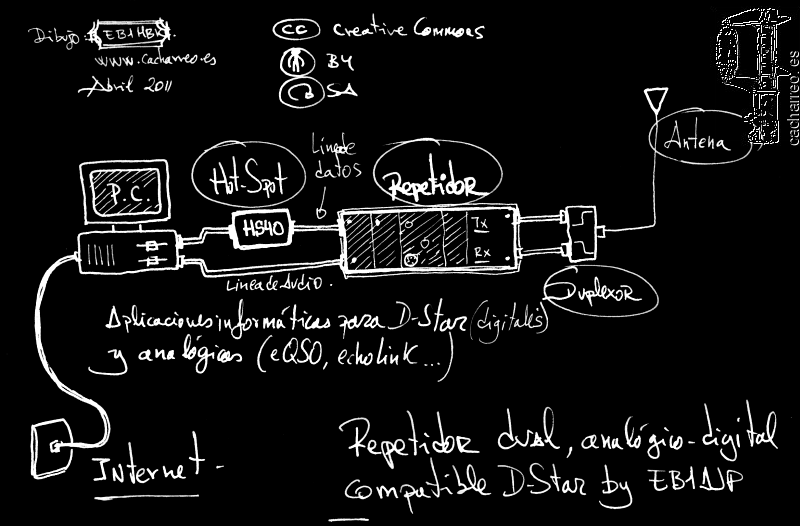 Dibujo: EB1HBK
www.cacharreo.es
Abril 2011
cc Creative Commons
BY
SA
cacharreo.es
Antena
Hot-Spot
Linea de
datos
Repetidor
P.C.
HS40
Tx
Rx
Linea de Audio.
Duplexor
Aplicaciones informáticas para D-Star (digitales)
y analógicas (eQSO, echolink...)
Internet-
Repetidor dual, analógico-digital
compatible D-Star by EB1AJP